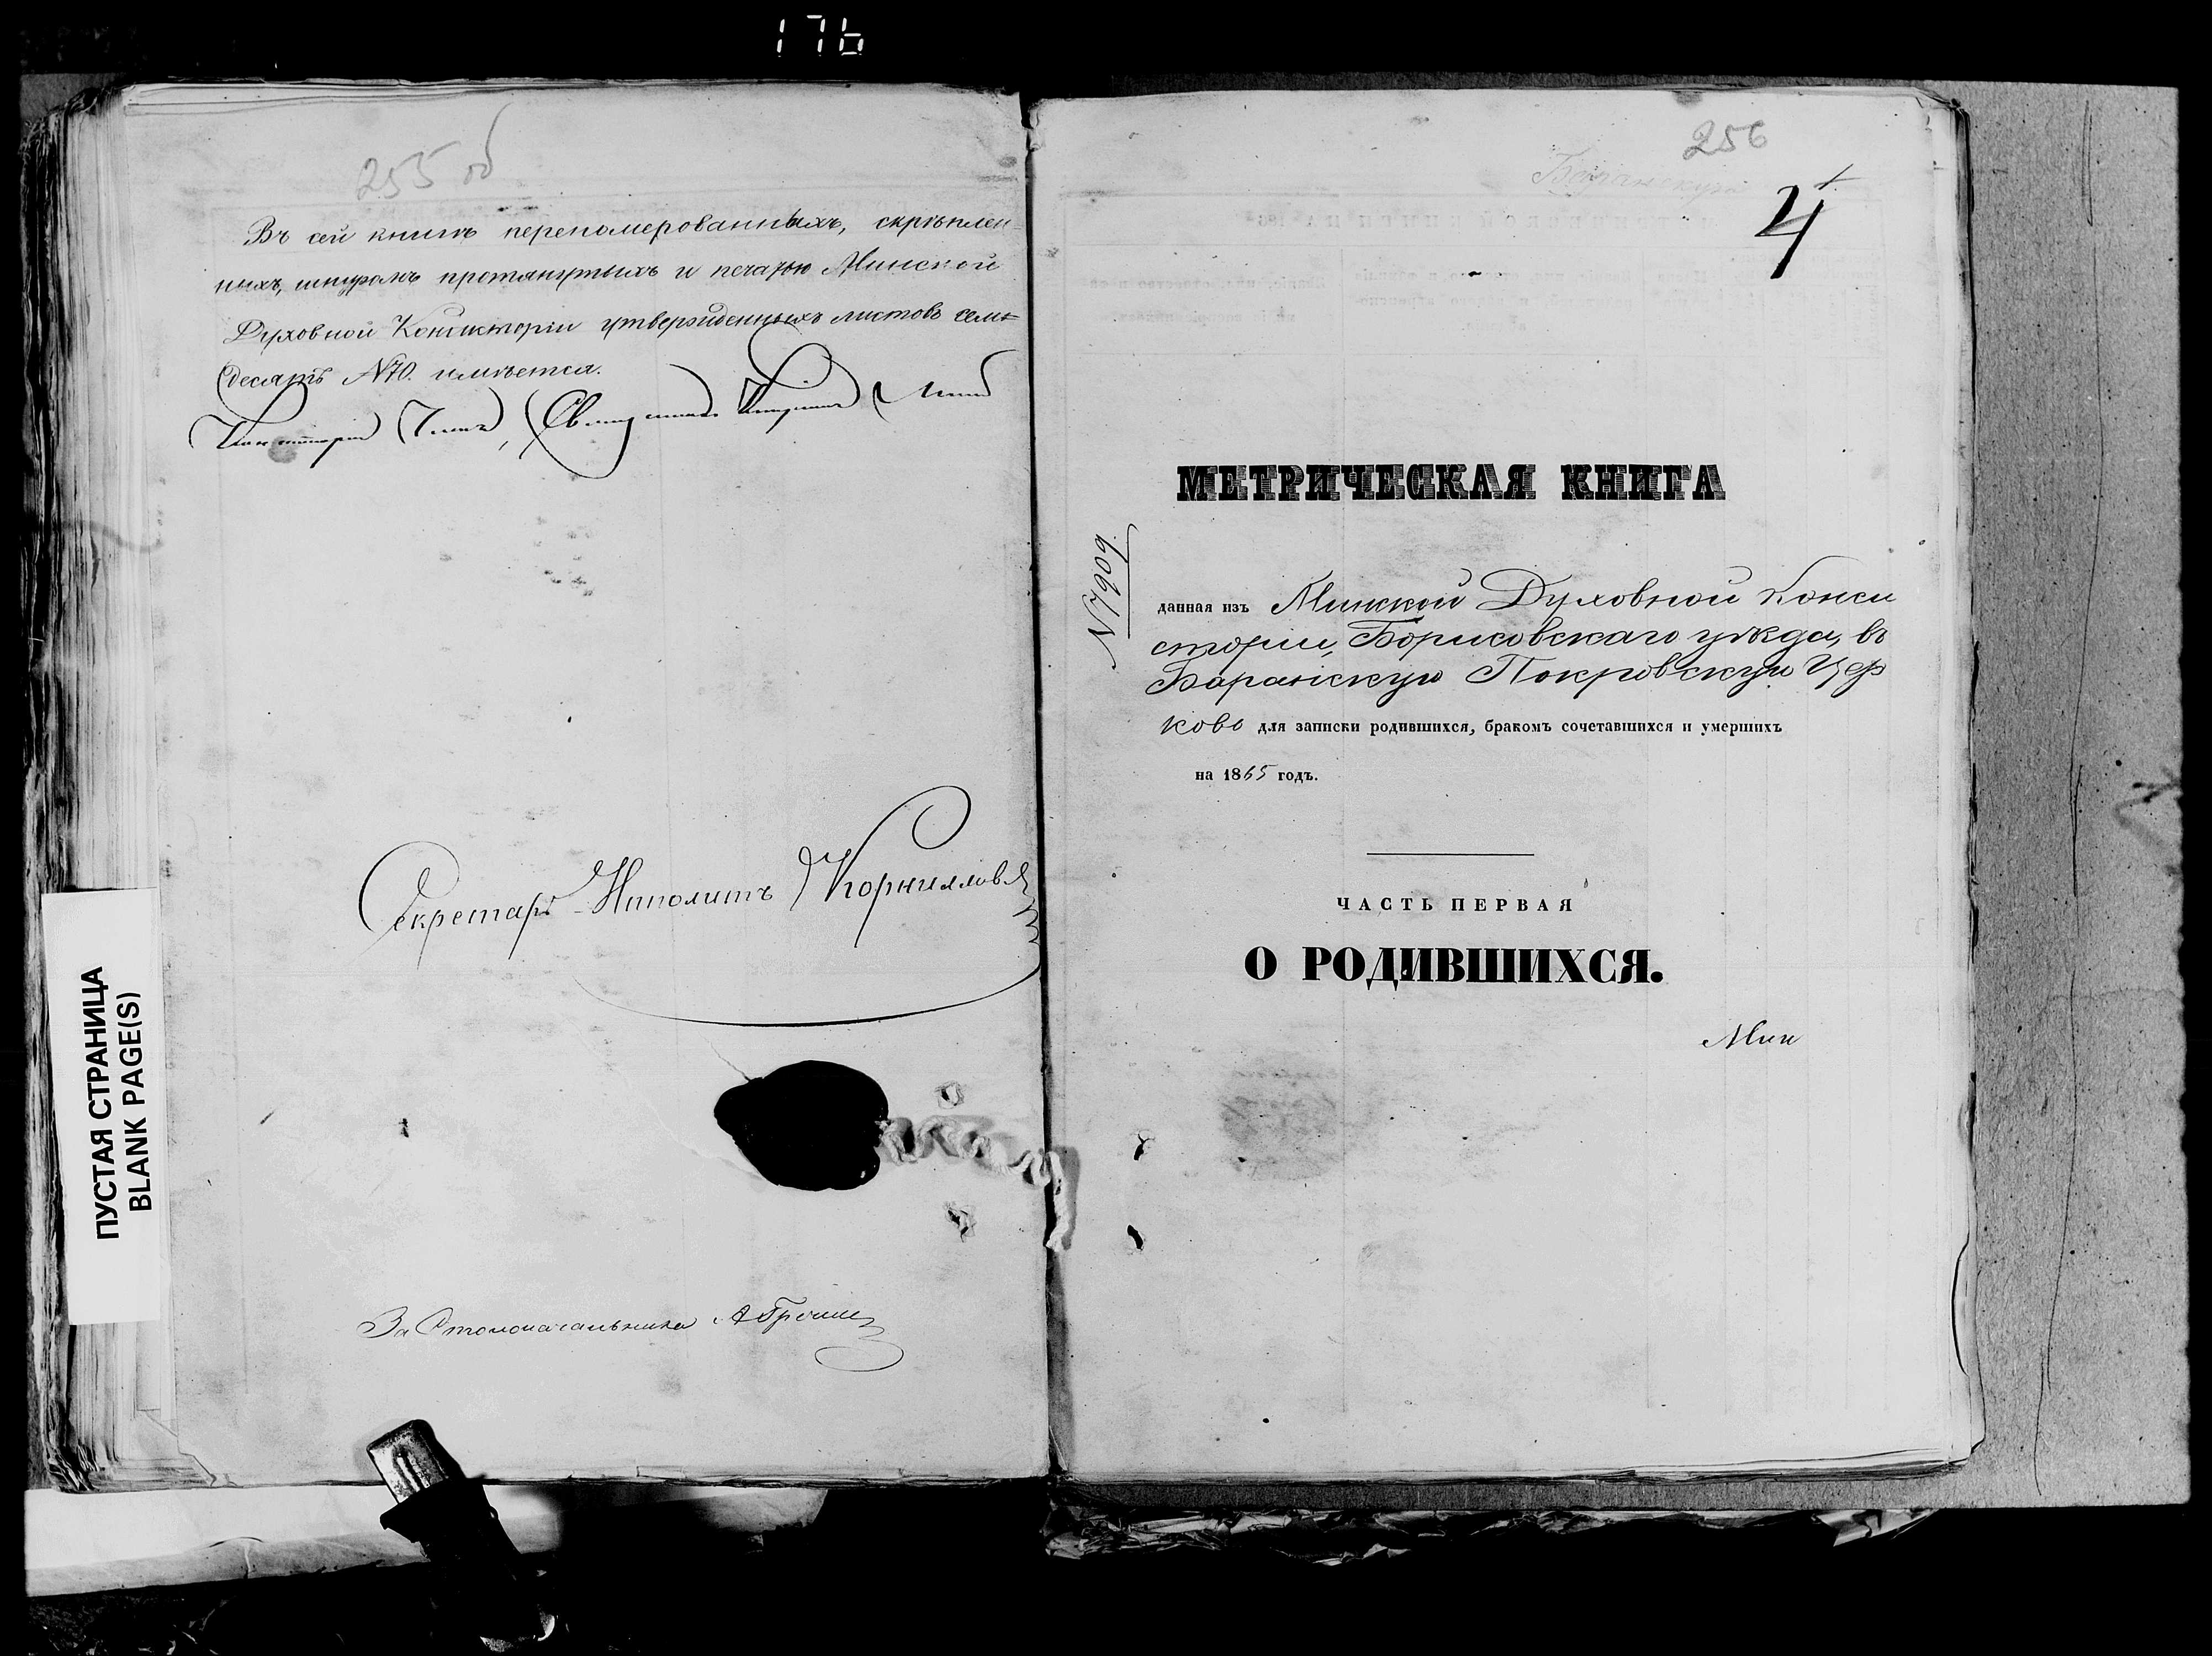 176
255 об
Въ сей книгѣ перепомерованныхъ, скрѣплен
ныхъ, шнуромъ протянутыхъ и печатью Минской
Духовной Консисторіи утвержденныхъ листовъ семь
десятъ №70. имѣется.
Консисторіи Членъ, Священникъ
Секретарь Ипполитъ Корниловъ
За Столоначальника
ПУСТАЯ СТРАНИЦА
BLANK PAGE(S)
256
Баранскую
4
МЕТРИЧЕСКАЯ КНИГА
N7909
данная изъ Минской Духовной Конси
сторіи, Борисовскаго уѣзда, въ
Баранскую Покровскую Цер
ковь для записки родившихся, бракомъ сочетавшихся и умершихъ
на 1865 годъ.
ЧАСТЬ ПЕРВАЯ
О РОДИВШИХСЯ.
Мин